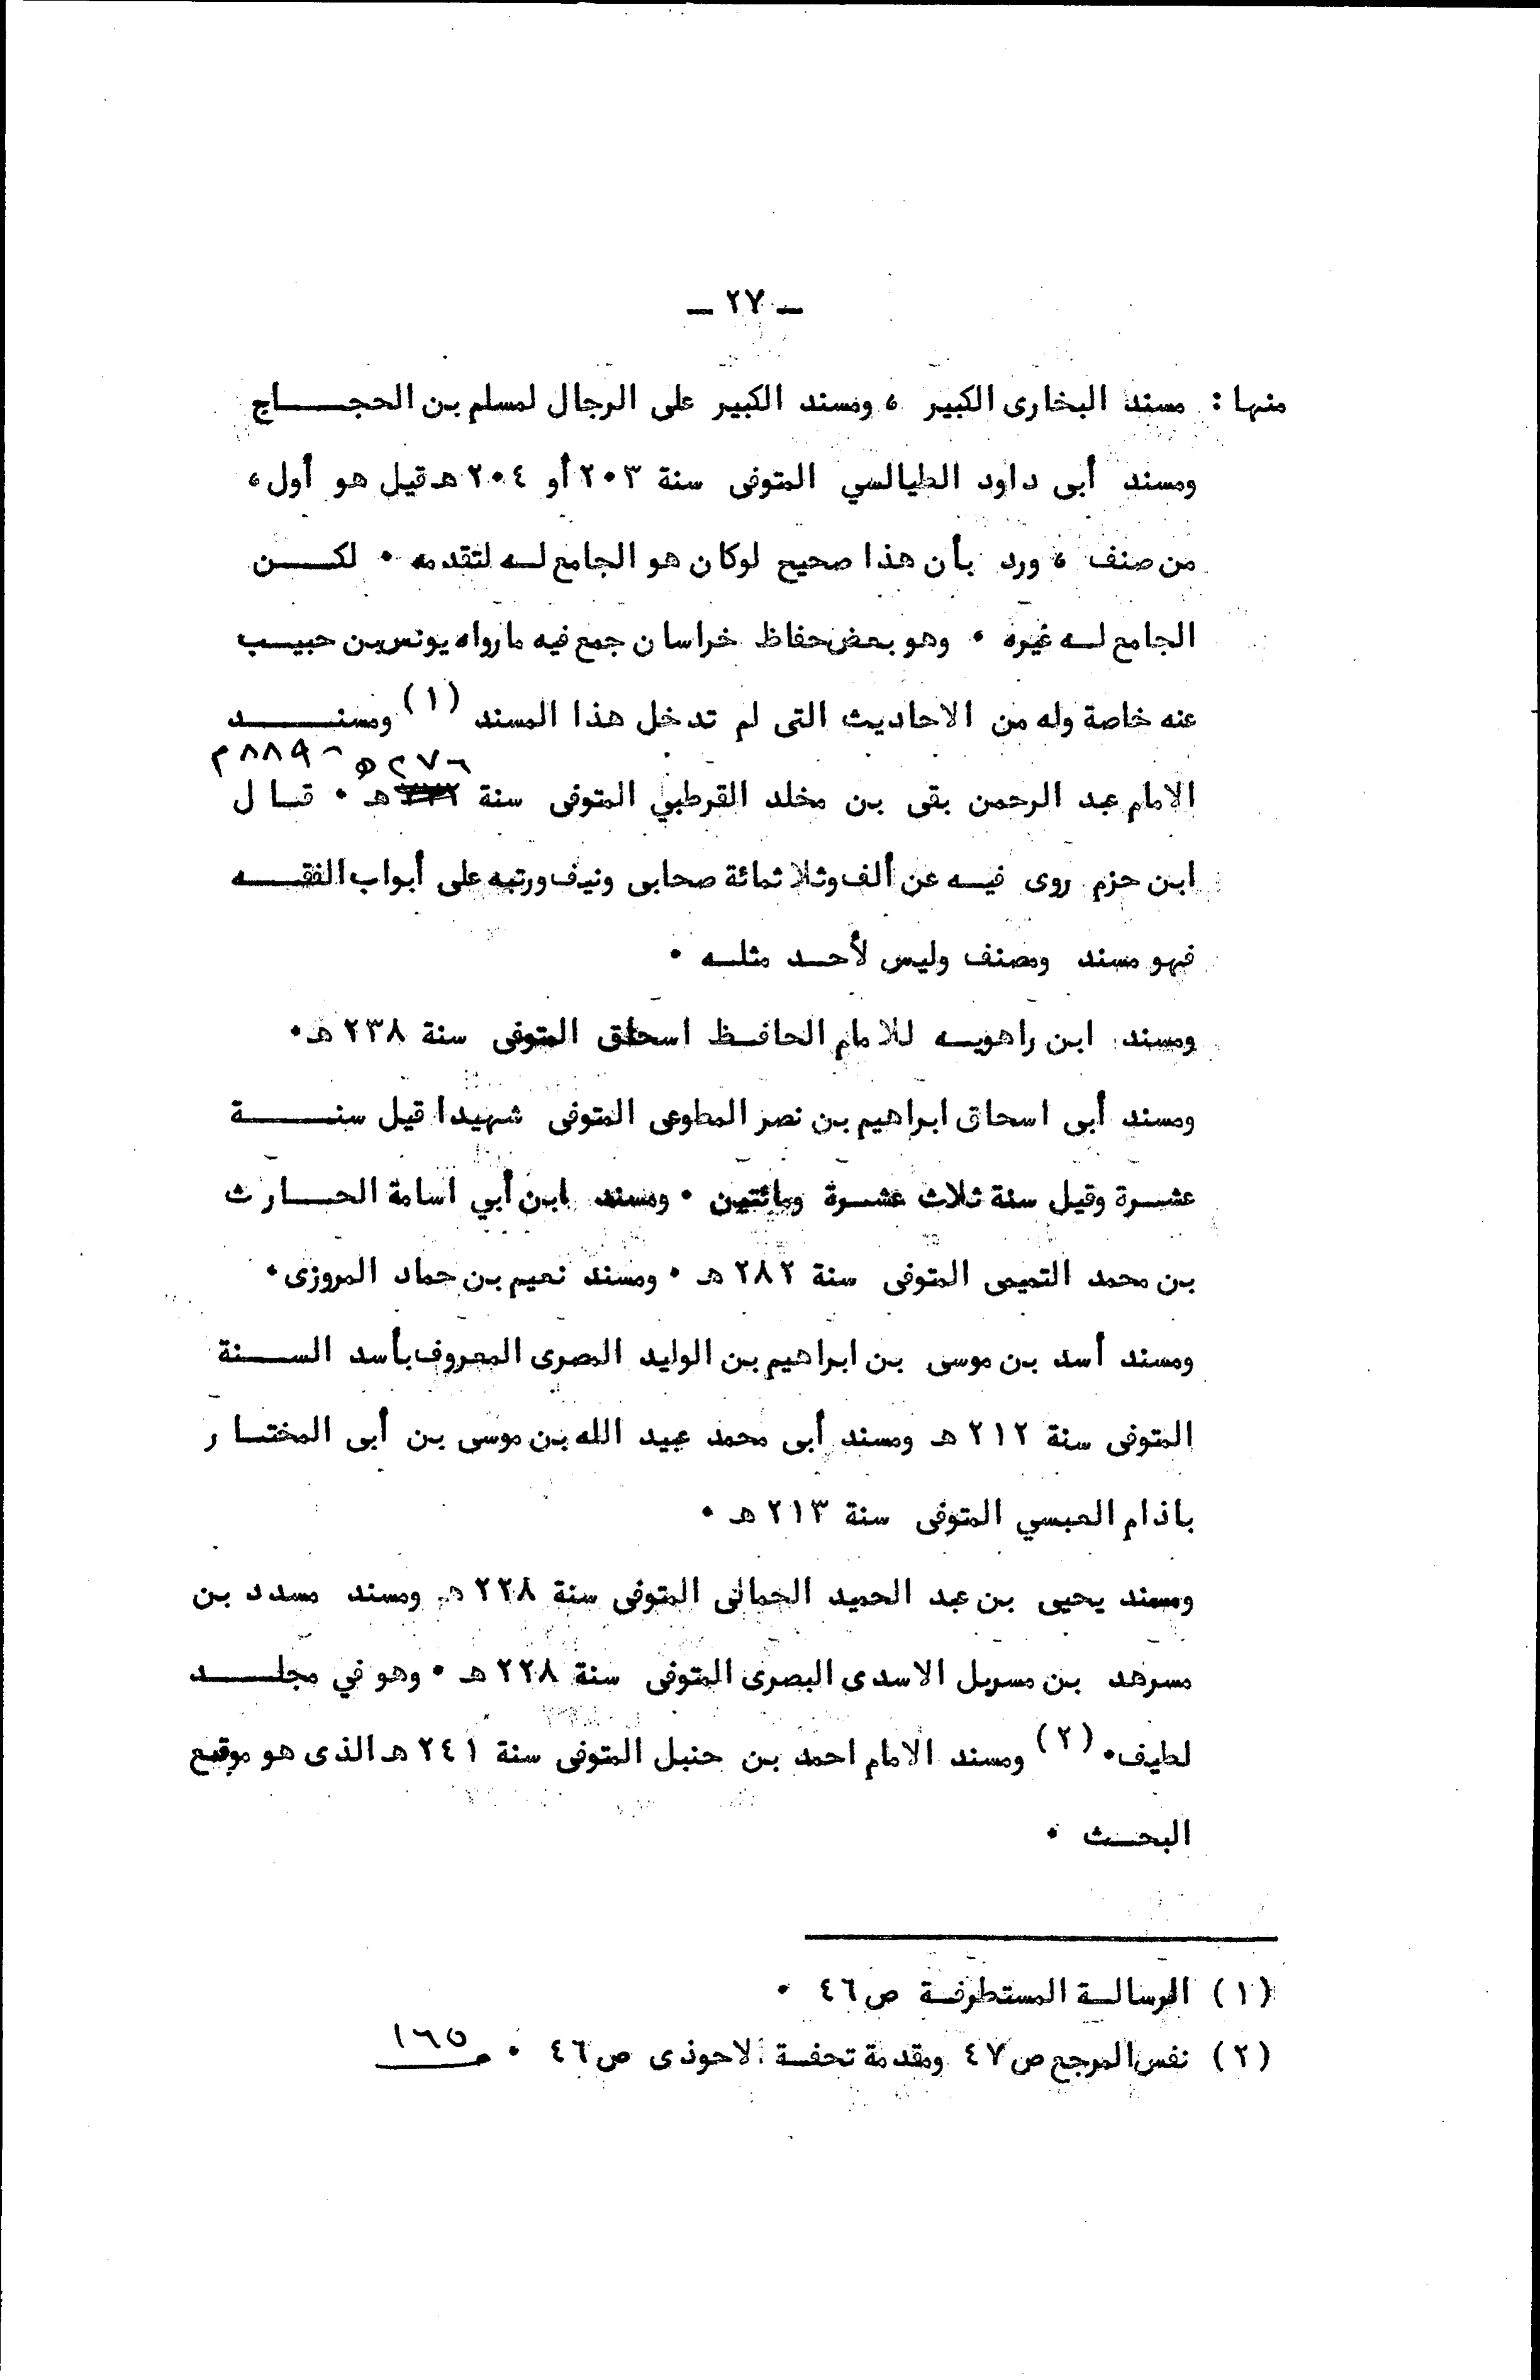 ـ ٢٧ ـ
منها : مسند البخارى الكبير ، ومسند الكبير على الرجال لمسلم بن الحجــــاج
ومسند أبى داود الطيالسي المتوفى سنة ٢٠٣ أو ٢٠٤ هـ قيل هو أول ،
من صنف ، ورد بأن هذا صحيح لوكان هو الجامع لــه لتقدمه ٠ لكـــن
الجامع لــه غيره ٠ وهو بعض حفاظ خراسان جمع فيه مارواه يونس بن حبيــب
عنه خاصة وله من الاحاديث التى لم تدخل هذا المسند (١) ومسنـــــد
٢٧٦ هـ - ٨٨٩ م
الامام عبد الرحمن بقى بن مخلد القرطبي المتوفى سنة هـ ٠ قـال
ابن حزم روى فيــه عن ألف وثلاثمائة صحابى ونيف ورتبه على أبواب الفقــه
فهو مسند ومصنف وليس لأحــد مثلــه ٠
ومسند ابن راهويــه للامام الحافــظ اسحاق المتوفى سنة ٢٣٨ هـ ٠
ومسند أبى اسحاق ابراهيم بن نصر المطوعى المتوفى شهيدا قيل سنـــــة
عشــرة وقيل سنة ثلاث عشــرة ومائتين ٠ ومسند ابن أبي اسامة الحــارث
بن محمد التميمى المتوفى سنة ٢٨٢ هـ ٠ ومسند نعيم بن حماد المروزى ٠
ومسند أسد بن موسى بن ابراهيم بن الوليد المصرى المعروف بأسد الســـنة
المتوفى سنة ٢١٢ هـ ومسند أبى محمد عبيد الله بن موسى بن أبى المختـار
باذام العبسي المتوفى سنة ٢١٣ هـ ٠
ومسند يحيى بن عبد الحميد الحمانى المتوفى سنة ٢٢٨ هـ ومسند مسدد بن
مسرهد بن مسربل الاسدى البصرى المتوفى سنة ٢٢٨ هـ ٠ وهو في مجلـــد
لطيف ٠ (٢) ومسند الامام احمد بن حنبل المتوفى سنة ٢٤١ هـ الذى هو موقع
البحــث ٠
(١) الرسالــة المستطرفــة ص ٤٦ ٠
(٢) نفس المرجع ص ٤٧ ومقدمة تحفــة الاحوذى ص ٤٦ ٠ ص ١٦٥